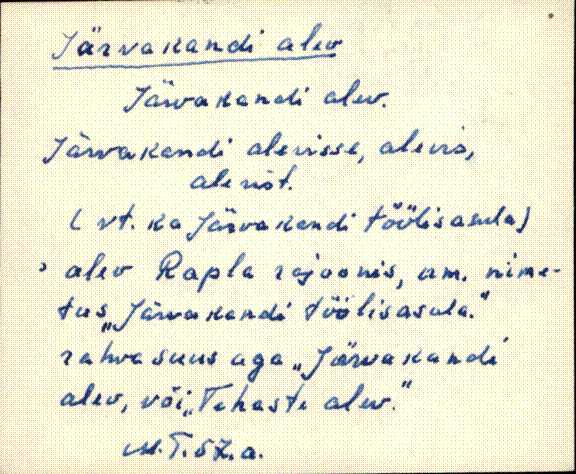 Järvakandi alev
Järvakandi alev.
Järvakandi alevisse, alevis,
alevist.
(vt. ka Järvakandi töölisasula)
alev Rapla rajoonis, am. nime-
tus „Järvakandi töölisasula."
rahvasuus aga „Järvakandi
alev, või „Tehaste alev."
M.T. 57.a.